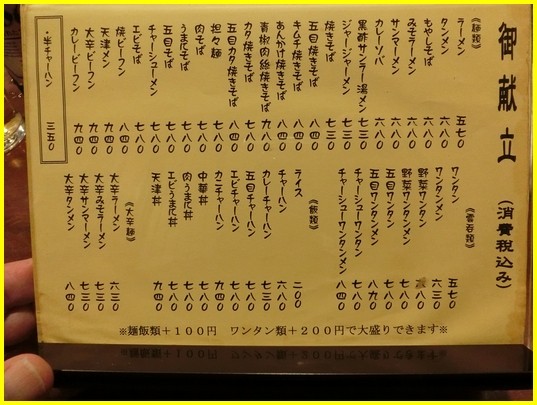 御献立 (消費税込み)
《麺類》
ラーメン 五七〇
タンメン 六八〇
もやしそば 六八〇
みそラーメン 六八〇
サンマーメン 六八〇
カレーソバ 六八〇
黒酢サンラー湯メン 七三〇
ジャージャーメン 七三〇
焼きそば 七三〇
五目焼きそば 八四〇
キムチ焼きそば 八四〇
あんかけ焼きそば 八四〇
青椒肉絲焼きそば 九八〇
カタ焼きそば 七八〇
五目カタ焼きそば 八四〇
担々麺 七八〇
肉そば 七八〇
うまにそば 七八〇
五目そば 七八〇
チャーシューメン 七八〇
エビそば 七八〇
焼ビーフン 八四〇
天津メン 九四〇
大辛ビーフン 九四〇
カレービーフン 九四〇
・半チャーハン 三五〇
《雲呑類》
ワンタン 五七〇
ワンタンメン 六三〇
野菜ワンタン 八〇
野菜ワンタンメン 七八〇
五目ワンタン 七八〇
五目ワンタンメン 八九〇
チャーシューワンタン 七八〇
チャーシューワンタンメン 八四〇
《飯類》
ライス 二〇〇
チャーハン 六八〇
カレーチャーハン 七三〇
五目チャーハン 七八〇
エビチャーハン 七八〇
カニチャーハン 九四〇
中華丼 七八〇
肉うまに丼 七八〇
エビうまに丼 七八〇
天津丼 九四〇
《大辛麺》
大辛ラーメン 六三〇
大辛みそラーメン 七三〇
大辛サンマーメン 七三〇
大辛タンメン 八四〇
※麺飯類＋１００円 ワンタン類＋２００円で大盛りできます※